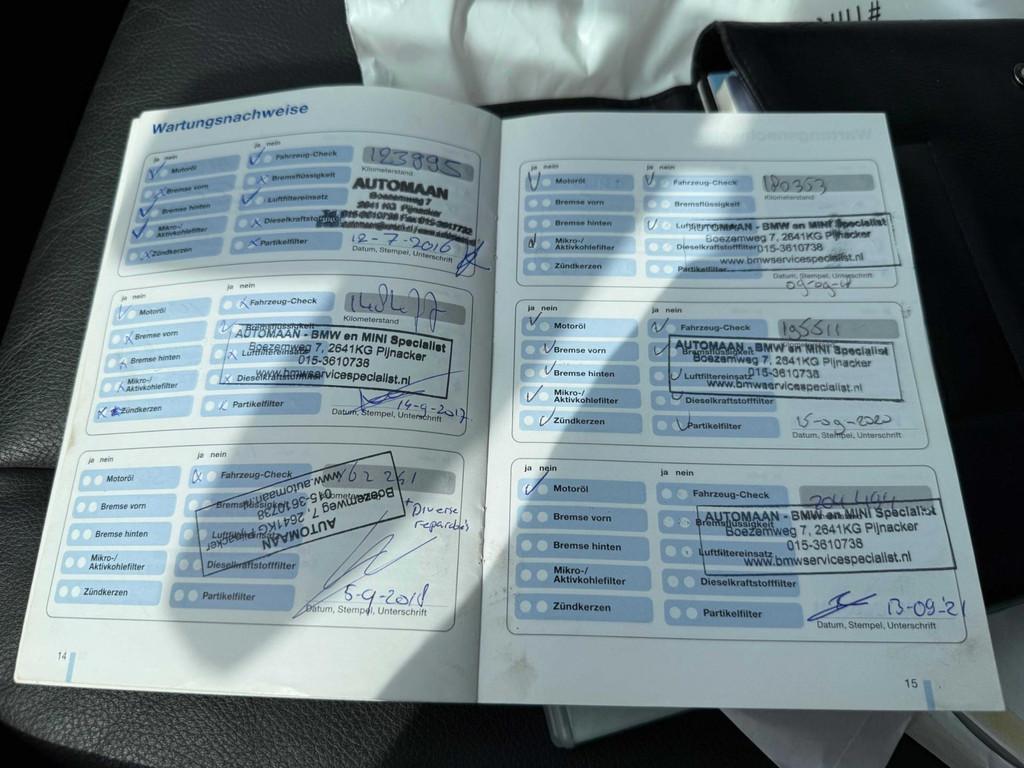 Wartungsnachweise
ja nein
Motoröl
Bremse vorn
Bremse hinten
Mikro-/
Aktivkohlefilter
Zündkerzen
Fahrzeug-Check
Bremsflüssigkeit
Luftfiltereinsatz
Partikelfilter
123895
Kilometerstand
AUTOMAAN
Boezemweg 7
2641 KG Pijnacker
12-7-2016
Datum, Stempel, Unterschrift
ja nein
Motoröl
Bremse vorn
Bremse hinten
Mikro-/
Aktivkohlefilter
Zündkerzen
ja nein
Fahrzeug-Check
Bremsflüssigkeit
Luftfiltereinsatz
Dieselkraftstofffilter
Partikelfilter
Kilometerstand
AUTOMAAN - BMW en MINI Specialist
Boezemweg 7, 2641KG Pijnacker
015-3610738
www.bmwservicespecialist.nl
14-9-2017
Datum, Stempel, Unterschrift
ja nein
Motoröl
Bremse vorn
Bremse hinten
Mikro-/
Aktivkohlefilter
Zündkerzen
ja nein
Fahrzeug-Check
Bremsflüssigkeit
Luftfiltereinsatz
Dieselkraftstofffilter
Partikelfilter
162261
AUTOMAAN
Boezemweg 7, 2641KG Pijnacker
015-3610738
www.automaan.nl
+ Diverse
5-9-2018
Datum, Stempel, Unterschrift
14
ja nein
Motoröl
Bremse vorn
Bremse hinten
Mikro-/
Aktivkohlefilter
Zündkerzen
ja nein
Fahrzeug-Check
Bremsflüssigkeit
Dieselkraftstofffilter
Partikelfilter
180353
Kilometerstand
AUTOMAAN - BMW en MINI Specialist
Boezemweg 7, 2641KG Pijnacker
015-3610738
www.bmwservicespecialist.nl
Datum, Stempel, Unterschrift
ja nein
Motoröl
Bremse vorn
Bremse hinten
Mikro-/
Aktivkohlefilter
Zündkerzen
ja nein
Fahrzeug-Check
Bremsflüssigkeit
Luftfiltereinsatz
Dieselkraftstofffilter
Partikelfilter
195511
AUTOMAAN - BMW en MINI Specialist
Boezemweg 7, 2641KG Pijnacker
015-3610738
www.bmwservicespecialist.nl
15-09-2020
Datum, Stempel, Unterschrift
ja nein
Motoröl
Bremse vorn
Bremse hinten
Mikro-/
Aktivkohlefilter
Zündkerzen
ja nein
Fahrzeug-Check
Bremsflüssigkeit
Luftfiltereinsatz
Dieselkraftstofffilter
Partikelfilter
AUTOMAAN - BMW en MINI Specialist
Boezemweg 7, 2641KG Pijnacker
015-3610738
www.bmwservicespecialist.nl
13-09-'21
Datum, Stempel, Unterschrift
15